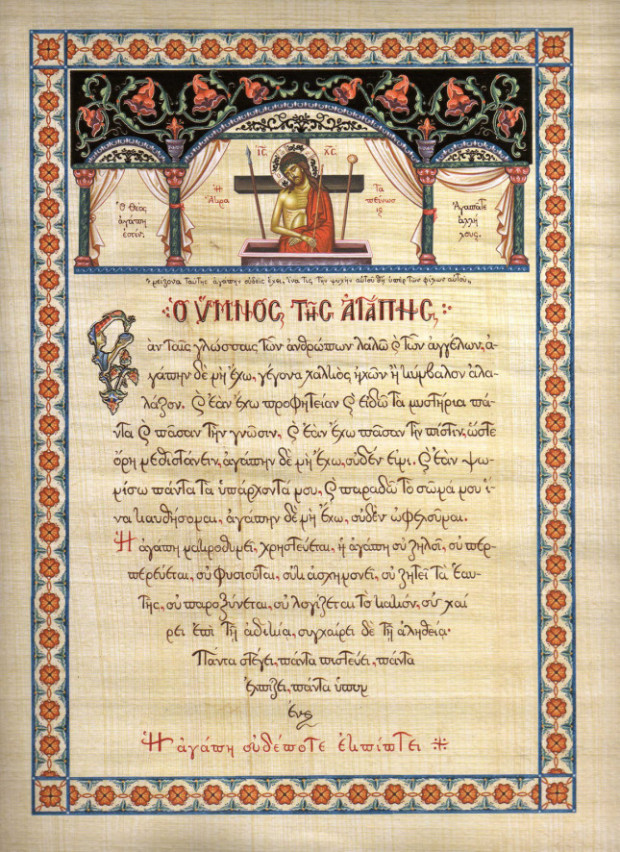 ἸC X̓C
Ὁ Θεὸς
ἀγάπη
ἐστίν.
Ἡ
Ἄκρα
Τα
πείνωσ
ις
Ἀγαπᾶτε
ἀλλή
λους.
μείζονα ταύτης ἀγάπην οὐδεὶς ἔχει, ἵνα τις τὴν ψυχὴν αὐτοῦ θῇ ὑπὲρ τῶν φίλων αὐτοῦ.
Ὁ ὝΜΝΟς Τῆς ἈΓΆΠΗς
Ἐὰν ταῖς γλώσσαις τῶν ἀνθρώπων λαλῶ ϗ τῶν ἀγγέλων, ἀ-
γάπην δὲ μὴ ἔχω, γέγονα χαλκὸς ἠχῶν ἢ κύμβαλον ἀλα-
λάζον. ϗ ἐὰν ἔχω προφητείαν ϗ εἰδῶ τὰ μυστήρια πά-
ντα ϗ πᾶσαν τὴν γνῶσιν, ϗ ἐὰν ἔχω πᾶσαν τὴν πίστιν, ὥστε
ὄρη μεθιστάνειν, ἀγάπην δὲ μὴ ἔχω, οὐδέν εἰμι. ϗ ἐὰν ψω-
μίσω πάντα τὰ ὑπάρχοντά μου, ϗ παραδῶ τὸ σῶμά μου ἵ-
να καυθήσομαι, ἀγάπην δὲ μὴ ἔχω, οὐδὲν ὠφελοῦμαι.
Ἡ ἀγάπη μακροθυμεῖ, χρηστεύεται, ἡ ἀγάπη οὐ ζηλοῖ, οὐ περ-
περεύεται, οὐ φυσιοῦται, οὐκ ἀσχημονεῖ, οὐ ζητεῖ τὰ ἑαυ-
τῆς, οὐ παροξύνεται, οὐ λογίζεται τὸ κακόν, οὐ χαί
ρει ἐπὶ τῇ ἀδικίᾳ, συγχαίρει δὲ τῇ ἀληθείᾳ·
Πάντα στέγει, πάντα πιστεύει, πάντα
ἐλπίζει, πάντα ὑπομ
ένει
Ἡ ἀγάπη οὐδέποτε ἐκπίπτει